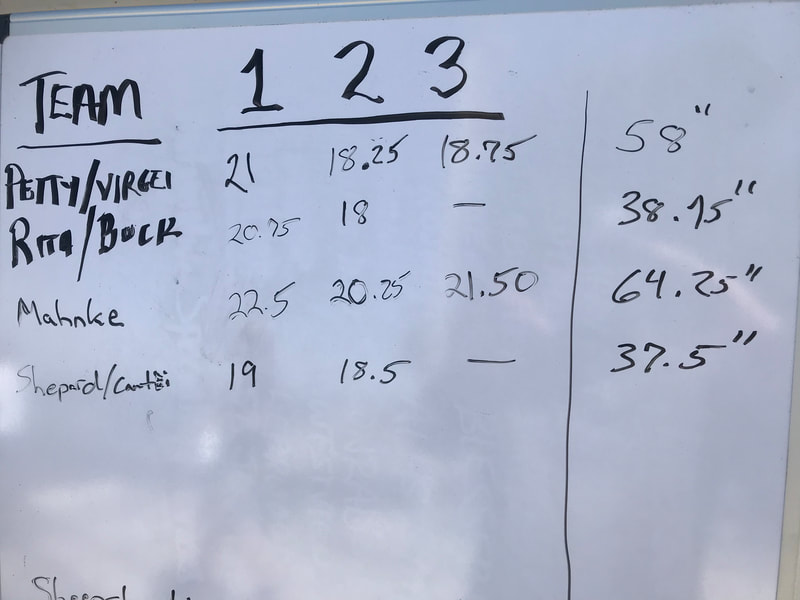 TEAM 1 2 3
PETTY/VIRGEI 21 18.25 18.75 58"
RITA/BUCK 20.75 18 — 38.75"
Mahnke 22.5 20.25 21.50 64.25"
Shepard/ 19 18.5 — 37.5"